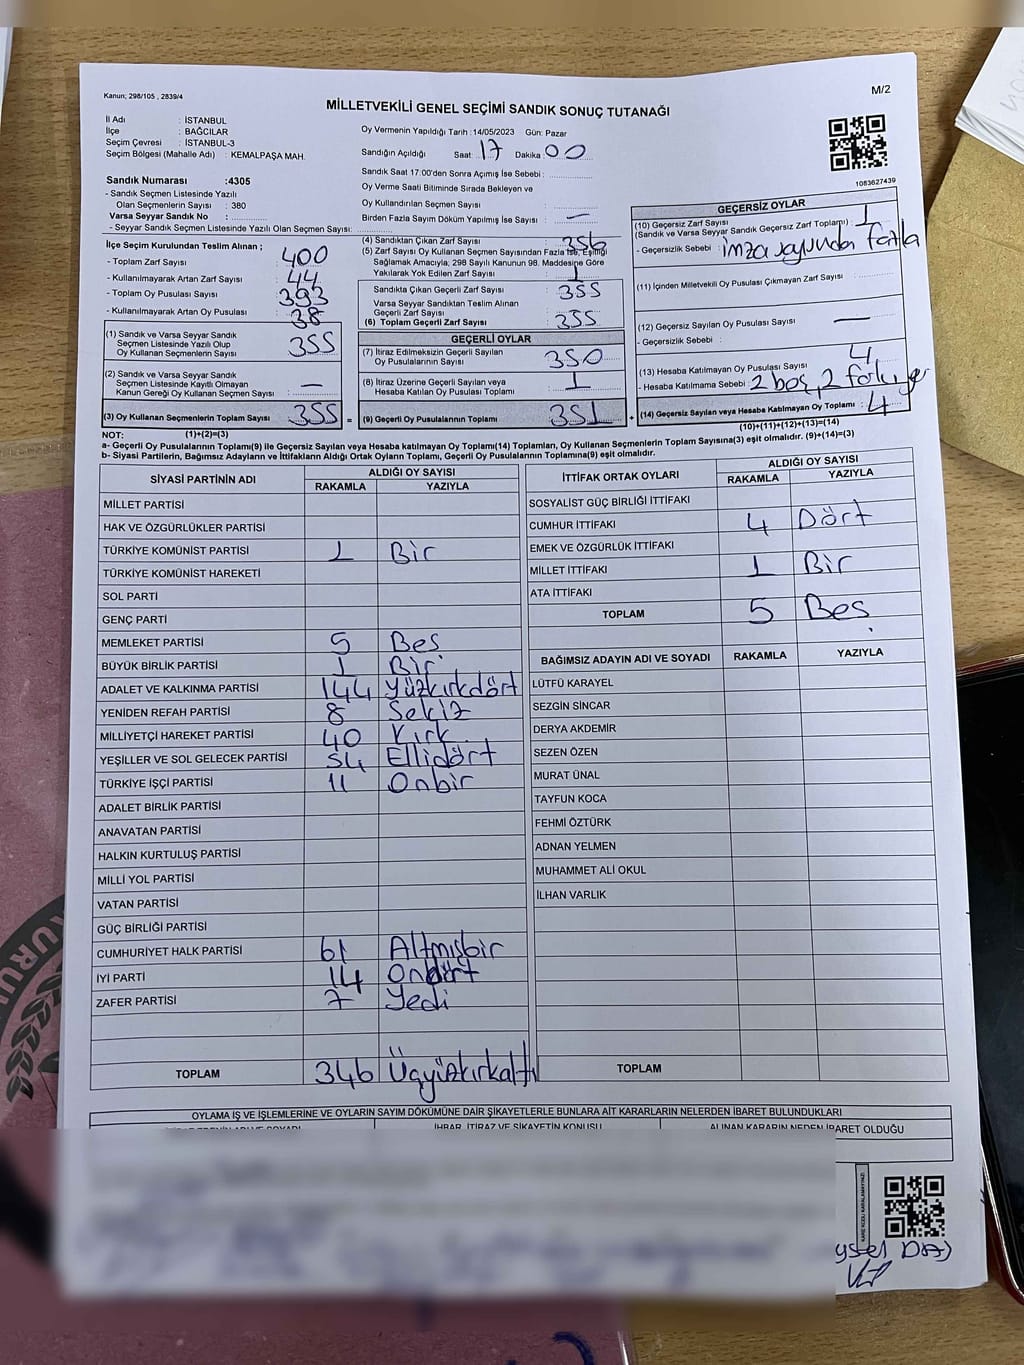 Kanun; 298/105 , 2839/4
M/2
MİLLETVEKİLİ GENEL SEÇİMİ SANDIK SONUÇ TUTANAĞI
İl Adı : İSTANBUL
İlçe : BAĞCILAR
Seçim Çevresi : İSTANBUL-3
Seçim Bölgesi (Mahalle Adı) : KEMALPAŞA MAH.
Sandık Numarası :4305
- Sandık Seçmen Listesinde Yazılı
Olan Seçmenlerin Sayısı : 380
Varsa Seyyar Sandık No :
- Seyyar Sandık Seçmen Listesinde Yazılı Olan Seçmen Sayısı:
Oy Vermenin Yapıldığı Tarih :14/05/2023 Gün: Pazar
Sandığın Açıldığı Saat: 17 Dakika: 00
Sandık Saat 17:00'den Sonra Açımış İse Sebebi :
Oy Verme Saati Bitiminde Sırada Bekleyen ve
Oy Kullandırılan Seçmen Sayısı
Birden Fazla Sayım Döküm Yapılmış İse Sayısı : —
1083627439
İlçe Seçim Kurulundan Teslim Alınan ;
- Toplam Zarf Sayısı 400
- Kullanılmayarak Artan Zarf Sayısı 44
- Toplam Oy Pusulası Sayısı 393
- Kullanılmayarak Artan Oy Pusulası 38
(1) Sandık ve Varsa Seyyar Sandık
Seçmen Listesinde Yazılı Olup
Oy Kullanan Seçmenlerin Sayısı 355
(2) Sandık ve Varsa Seyyar Sandık
Seçmen Listesinde Kayıtlı Olmayan
Kanun Gereği Oy Kullanan Seçmen Sayısı —
(3) Oy Kullanan Seçmenlerin Toplam Sayısı 355 =
(1)+(2)=(3)
(4) Sandıktan Çıkan Zarf Sayısı 356
(5) Zarf Sayısı Oy Kullanan Seçmen Sayısından Fazla İse, Eşitliği
Sağlamak Amacıyla, 298 Sayılı Kanunun 98. Maddesine Göre
Yakılarak Yok Edilen Zarf Sayısı 1
Sandıkta Çıkan Geçerli Zarf Sayısı 355
Varsa Seyyar Sandıktan Teslim Alınan
Geçerli Zarf Sayısı
(6) Toplam Geçerli Zarf Sayısı 355
GEÇERLİ OYLAR
(7) İtiraz Edilmeksizin Geçerli Sayılan
Oy Pusulalarının Sayısı 350
(8) İtiraz Üzerine Geçerli Sayılan veya
Hesaba Katılan Oy Pusulası Toplamı 1
(9) Geçerli Oy Pusulalarının Toplamı 351 +
GEÇERSİZ OYLAR
(10) Geçersiz Zarf Sayısı
(Sandık ve Varsa Seyyar Sandık Geçersiz Zarf Toplamı) : 1
- Geçersizlik Sebebi : imza sayısından fazla
(11) İçinden Milletvekili Oy Pusulası Çıkmayan Zarf Sayısı :
(12) Geçersiz Sayılan Oy Pusulası Sayısı : —
- Geçersizlik Sebebi :
(13) Hesaba Katılmayan Oy Pusulası Sayısı : 4
- Hesaba Katılmama Sebebi : 2 boş, 2
(14) Geçersiz Sayılan veya Hesaba Katılmayan Oy Toplamı : 4
(10)+(11)+(12)+(13)=(14)
NOT:
a- Geçerli Oy Pusulalarının Toplamı(9) ile Geçersiz Sayılan veya Hesaba katılmayan Oy Toplamı(14) Toplamları, Oy Kullanan Seçmenlerin Toplam Sayısına(3) eşit olmalıdır. (9)+(14)=(3)
b- Siyasi Partilerin, Bağımsız Adayların ve İttifakların Aldığı Ortak Oyların Toplamı, Geçerli Oy Pusulalarının Toplamına(9) eşit olmalıdır.
SİYASİ PARTİNİN ADI ALDIĞI OY SAYISI
RAKAMLA YAZIYLA
MİLLET PARTİSİ
HAK VE ÖZGÜRLÜKLER PARTİSİ
TÜRKİYE KOMÜNİST PARTİSİ 1 Bir
TÜRKİYE KOMÜNİST HAREKETİ
SOL PARTİ
GENÇ PARTİ
MEMLEKET PARTİSİ 5 Beş
BÜYÜK BİRLİK PARTİSİ 1 Bir
ADALET VE KALKINMA PARTİSİ 144 Yüzkırkdört
YENİDEN REFAH PARTİSİ 8 Sekiz
MİLLİYETÇİ HAREKET PARTİSİ 40 Kırk
YEŞİLLER VE SOL GELECEK PARTİSİ 54 Ellidört
TÜRKİYE İŞÇİ PARTİSİ 11 Onbir
ADALET BİRLİK PARTİSİ
ANAVATAN PARTİSİ
HALKIN KURTULUŞ PARTİSİ
MİLLİ YOL PARTİSİ
VATAN PARTİSİ
GÜÇ BİRLİĞİ PARTİSİ
CUMHURİYET HALK PARTİSİ 61 Altmışbir
İYİ PARTİ 14 Ondört
ZAFER PARTİSİ 7 Yedi
TOPLAM 346 Üçyüzkırkaltı
İTTİFAK ORTAK OYLARI ALDIĞI OY SAYISI
RAKAMLA YAZIYLA
SOSYALİST GÜÇ BİRLİĞİ İTTİFAKI
CUMHUR İTTİFAKI 4 Dört
EMEK VE ÖZGÜRLÜK İTTİFAKI
MİLLET İTTİFAKI 1 Bir
ATA İTTİFAKI
TOPLAM 5 Beş
BAĞIMSIZ ADAYIN ADI VE SOYADI RAKAMLA YAZIYLA
LÜTFÜ KARAYEL
SEZGİN SİNCAR
DERYA AKDEMİR
SEZEN ÖZEN
MURAT ÜNAL
TAYFUN KOCA
FEHMİ ÖZTÜRK
ADNAN YELMEN
MUHAMMET ALİ OKUL
İLHAN VARLIK
TOPLAM
OYLAMA İŞ VE İŞLEMLERİNE VE OYLARIN SAYIM DÖKÜMÜNE DAİR ŞİKAYETLERLE BUNLARA AİT KARARLARIN NELERDEN İBARET BULUNDUKLARI
İHBAR, İTİRAZ VE ŞİKAYETİN KONUSU ALINAN KARARIN NEDEN İBARET OLDUĞU